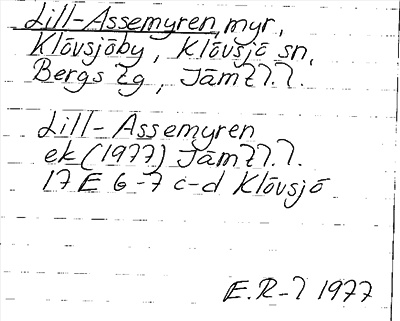 Lill-Assemyren, myr,
Klövsjöby, Klövsjö sn,
Bergs tg, Jämtl.
Lill-Assemyren
ek (1977) Jämtl.
17 E 6-7 c-d Klövsjö
E.R-l 1977